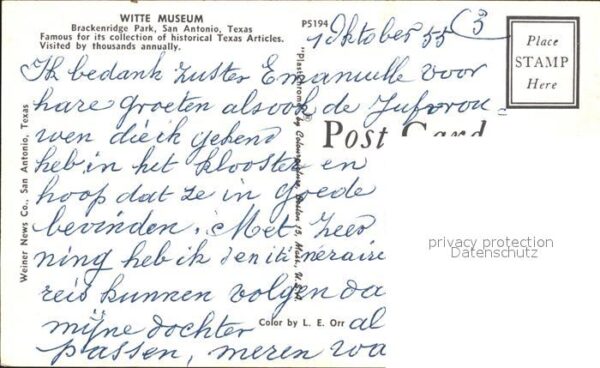 WITTE MUSEUM
Brackenridge Park, San Antonio, Texas
Famous for its collection of historical Texas Articles.
Visited by thousands annually.
P5194
1 Oktober 55 (3
Place
STAMP
Here
Ik bedank Zuster Emanuelle voor
hare groeten alsook de Jufvrou=
wen die ik gekend
Post Card
heb in het klooster en
hoop dat ze in goede
bevinden. Met
ning heb ik d'en itinéraire
reis kunnen volgen da
mijne dochter al
passen, meren wa
Color by L. E. Orr
Weiner News Co., San Antonio, Texas
"Plastichrome" by Colourpicture, Boston 15, Mass., U.S.A.
privacy protection
Datenschutz